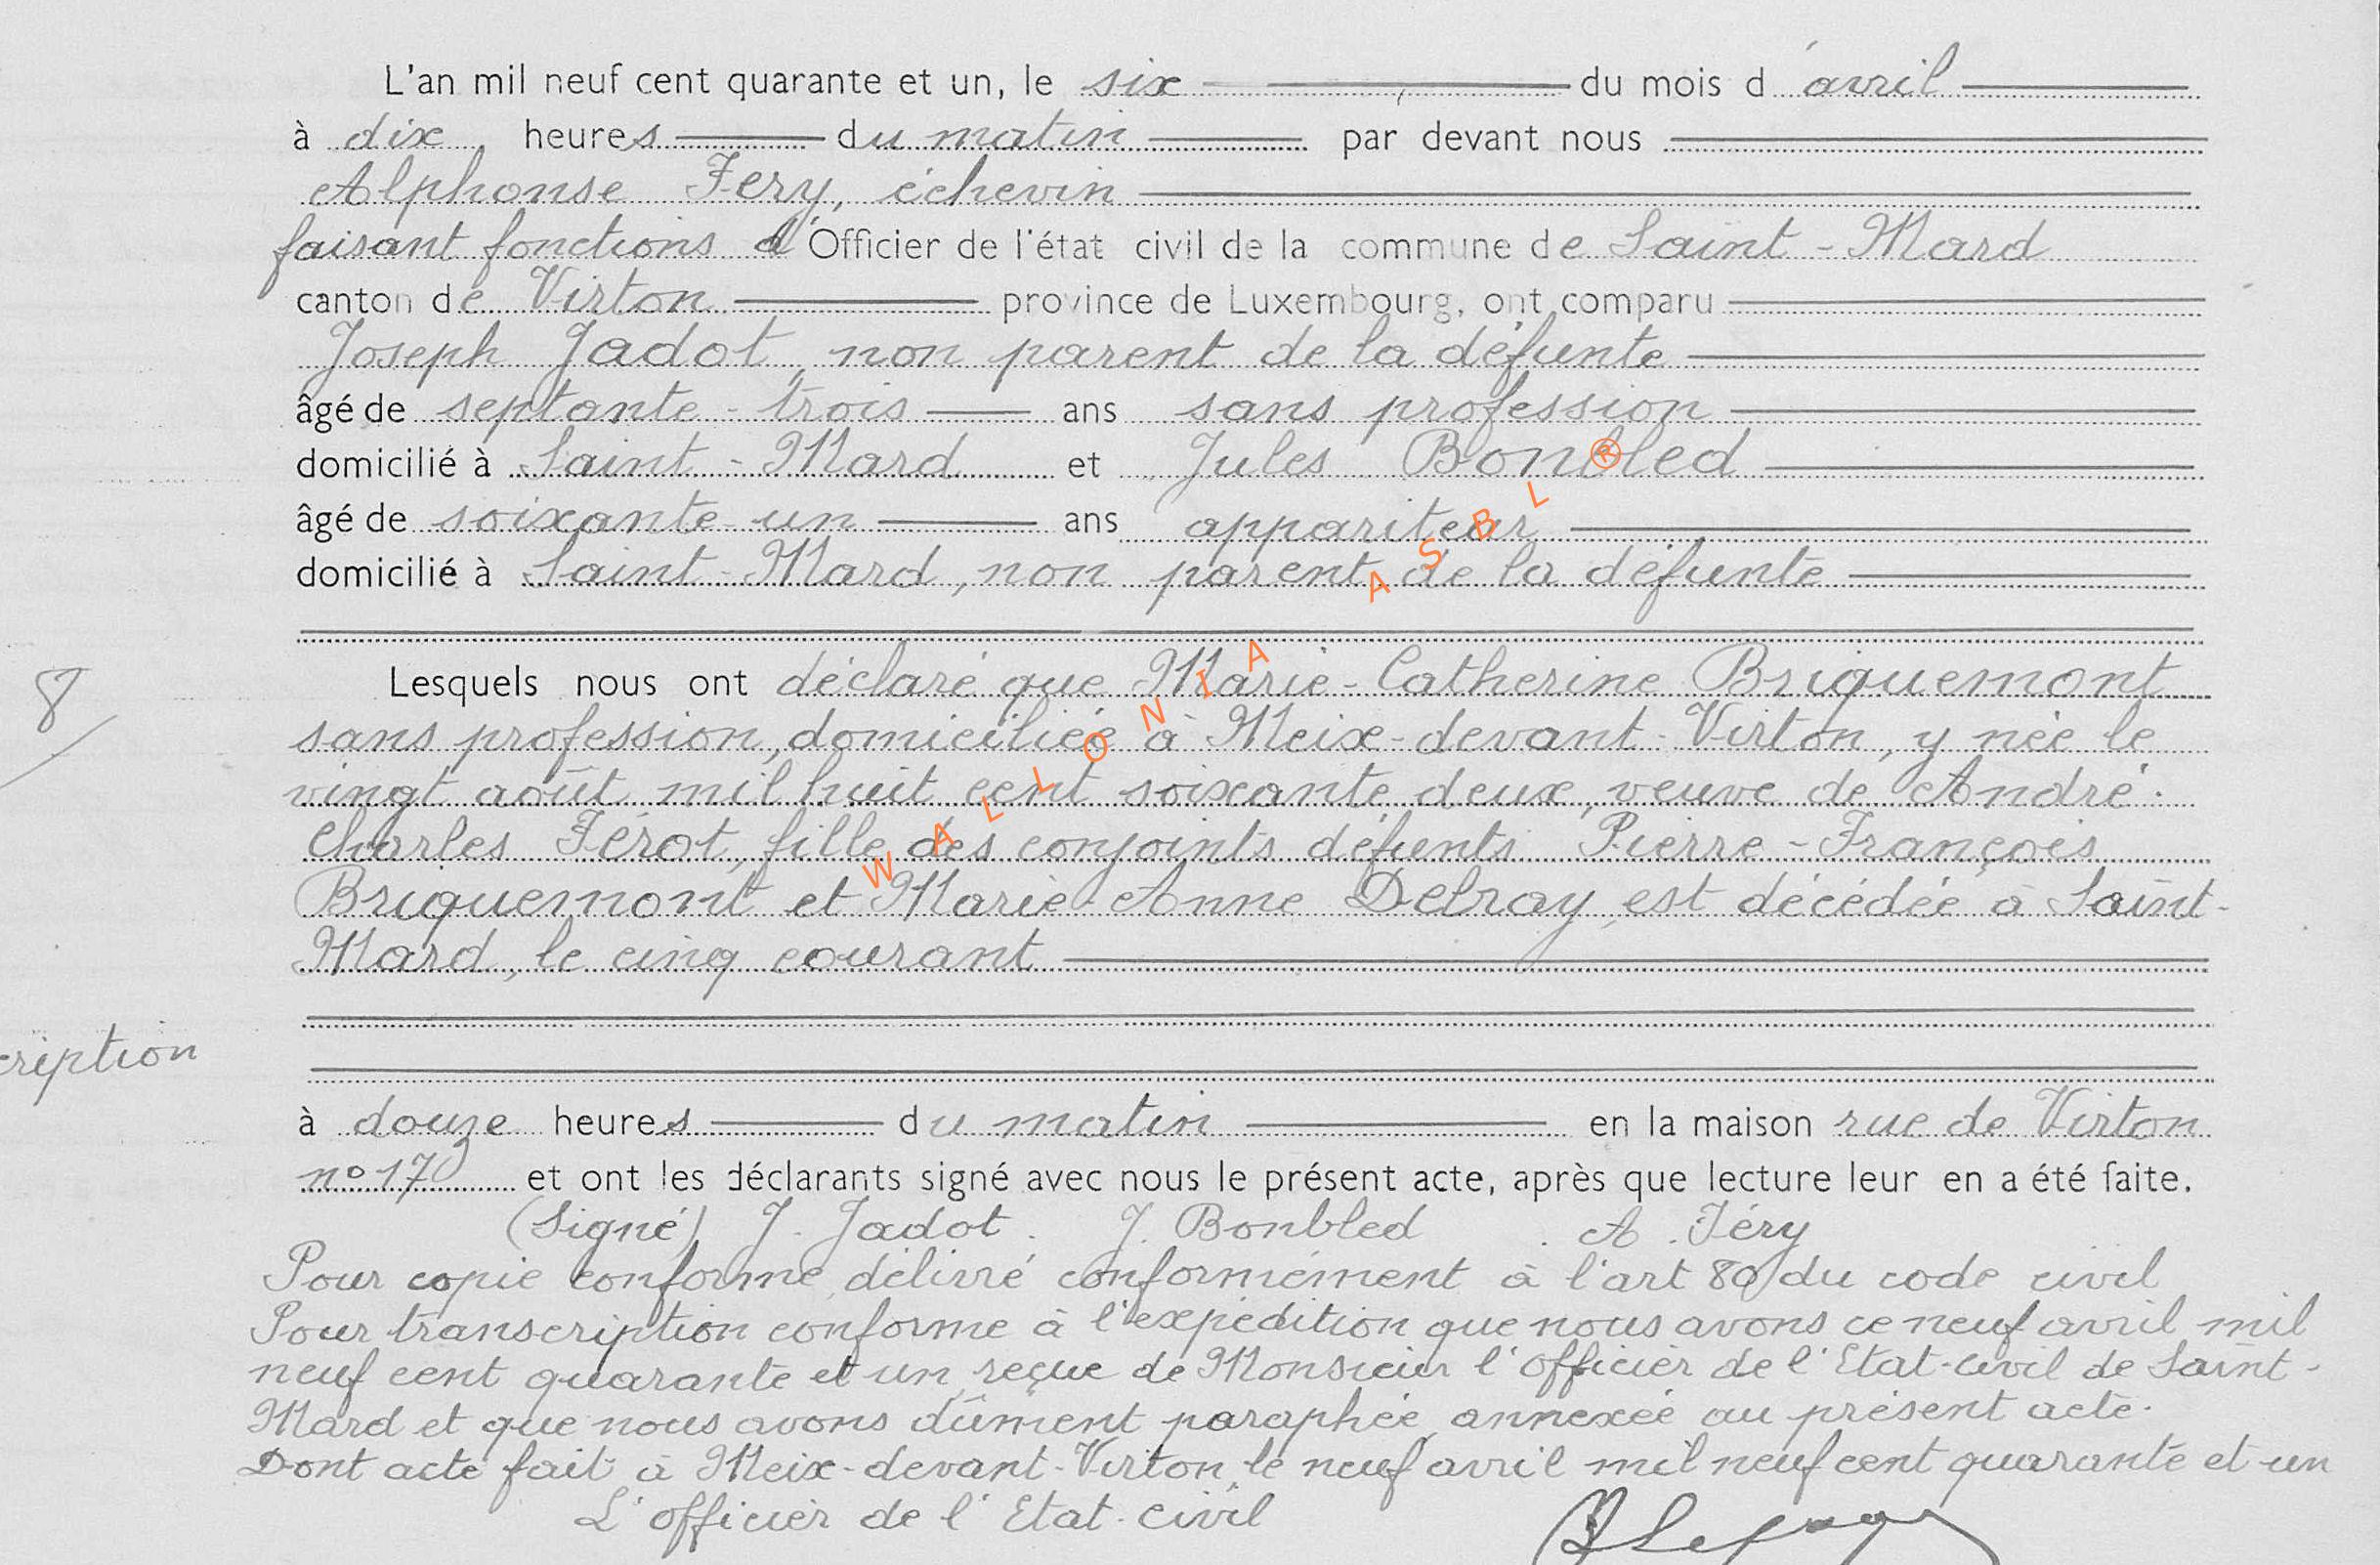 L'an mil neuf cent quarante et un, le six du mois d'avril
à dix heures du matin par devant nous
Alphonse Fery, échevin
faisant fonctions d'Officier de l'état civil de la commune de Saint-Mard
canton de Virton province de Luxembourg, ont comparu
Joseph Jadot, non parent de la défunte
âgé de septante-trois ans sans profession
domicilié à Saint-Mard et Jules Bonbled
âgé de soixante-un ans appariteur
domicilié à Saint-Mard, non parent de la défunte
Lesquels nous ont déclaré que Marie-Catherine Briquemont
8
sans profession, domiciliée à Meix-devant-Virton, y née le
vingt août mil huit cent soixante deux, veuve de André-
Charles Férot, fille des conjoints défunts Pierre-François
Briquemont et Marie-Anne Delray, est décédée à Saint-
Mard, le cinq courant
cription
à douze heures du matin en la maison rue de Virton
n° 17 et ont les déclarants signé avec nous le présent acte, après que lecture leur en a été faite.
(Signé) J. Jadot. J. Bonbled. A. Féry
Pour copie conforme, délivré conformément à l'art 80 du code civil
Pour transcription conforme à l'expédition que nous avons ce neuf avril mil
neuf cent quarante et un, reçue de Monsieur l'officier de l'Etat-civil de Saint-
Mard et que nous avons dûment paraphée, annexée au présent acte.
Dont acte fait à Meix-devant-Virton, le neuf avril mil neuf cent quarante et un
L'officier de l'Etat-civil
WALLONIA ASBL ®